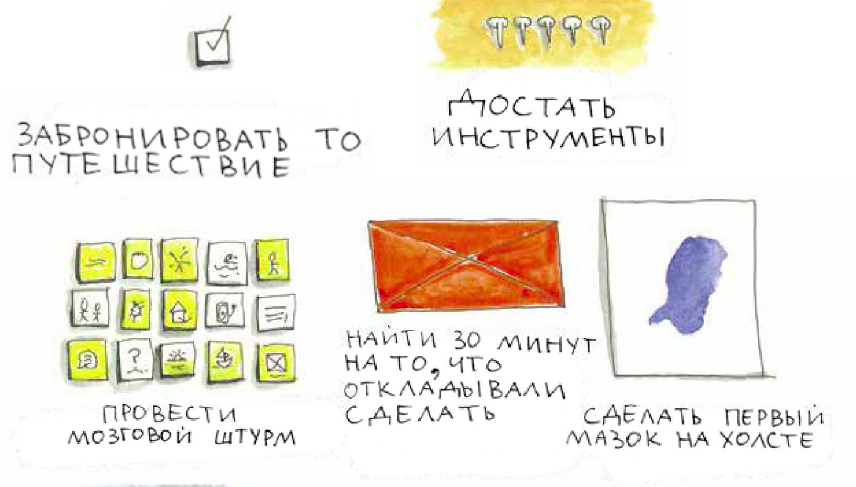 ЗАБРОНИРОВАТЬ ТО
ПУТЕШЕСТВИЕ
ДОСТАТЬ
ИНСТРУМЕНТЫ
ПРОВЕСТИ
МОЗГОВОЙ ШТУРМ
НАЙТИ 30 МИНУТ
НА ТО, ЧТО
ОТКЛАДЫВАЛИ
СДЕЛАТЬ
СДЕЛАТЬ ПЕРВЫЙ
МАЗОК НА ХОЛСТЕ